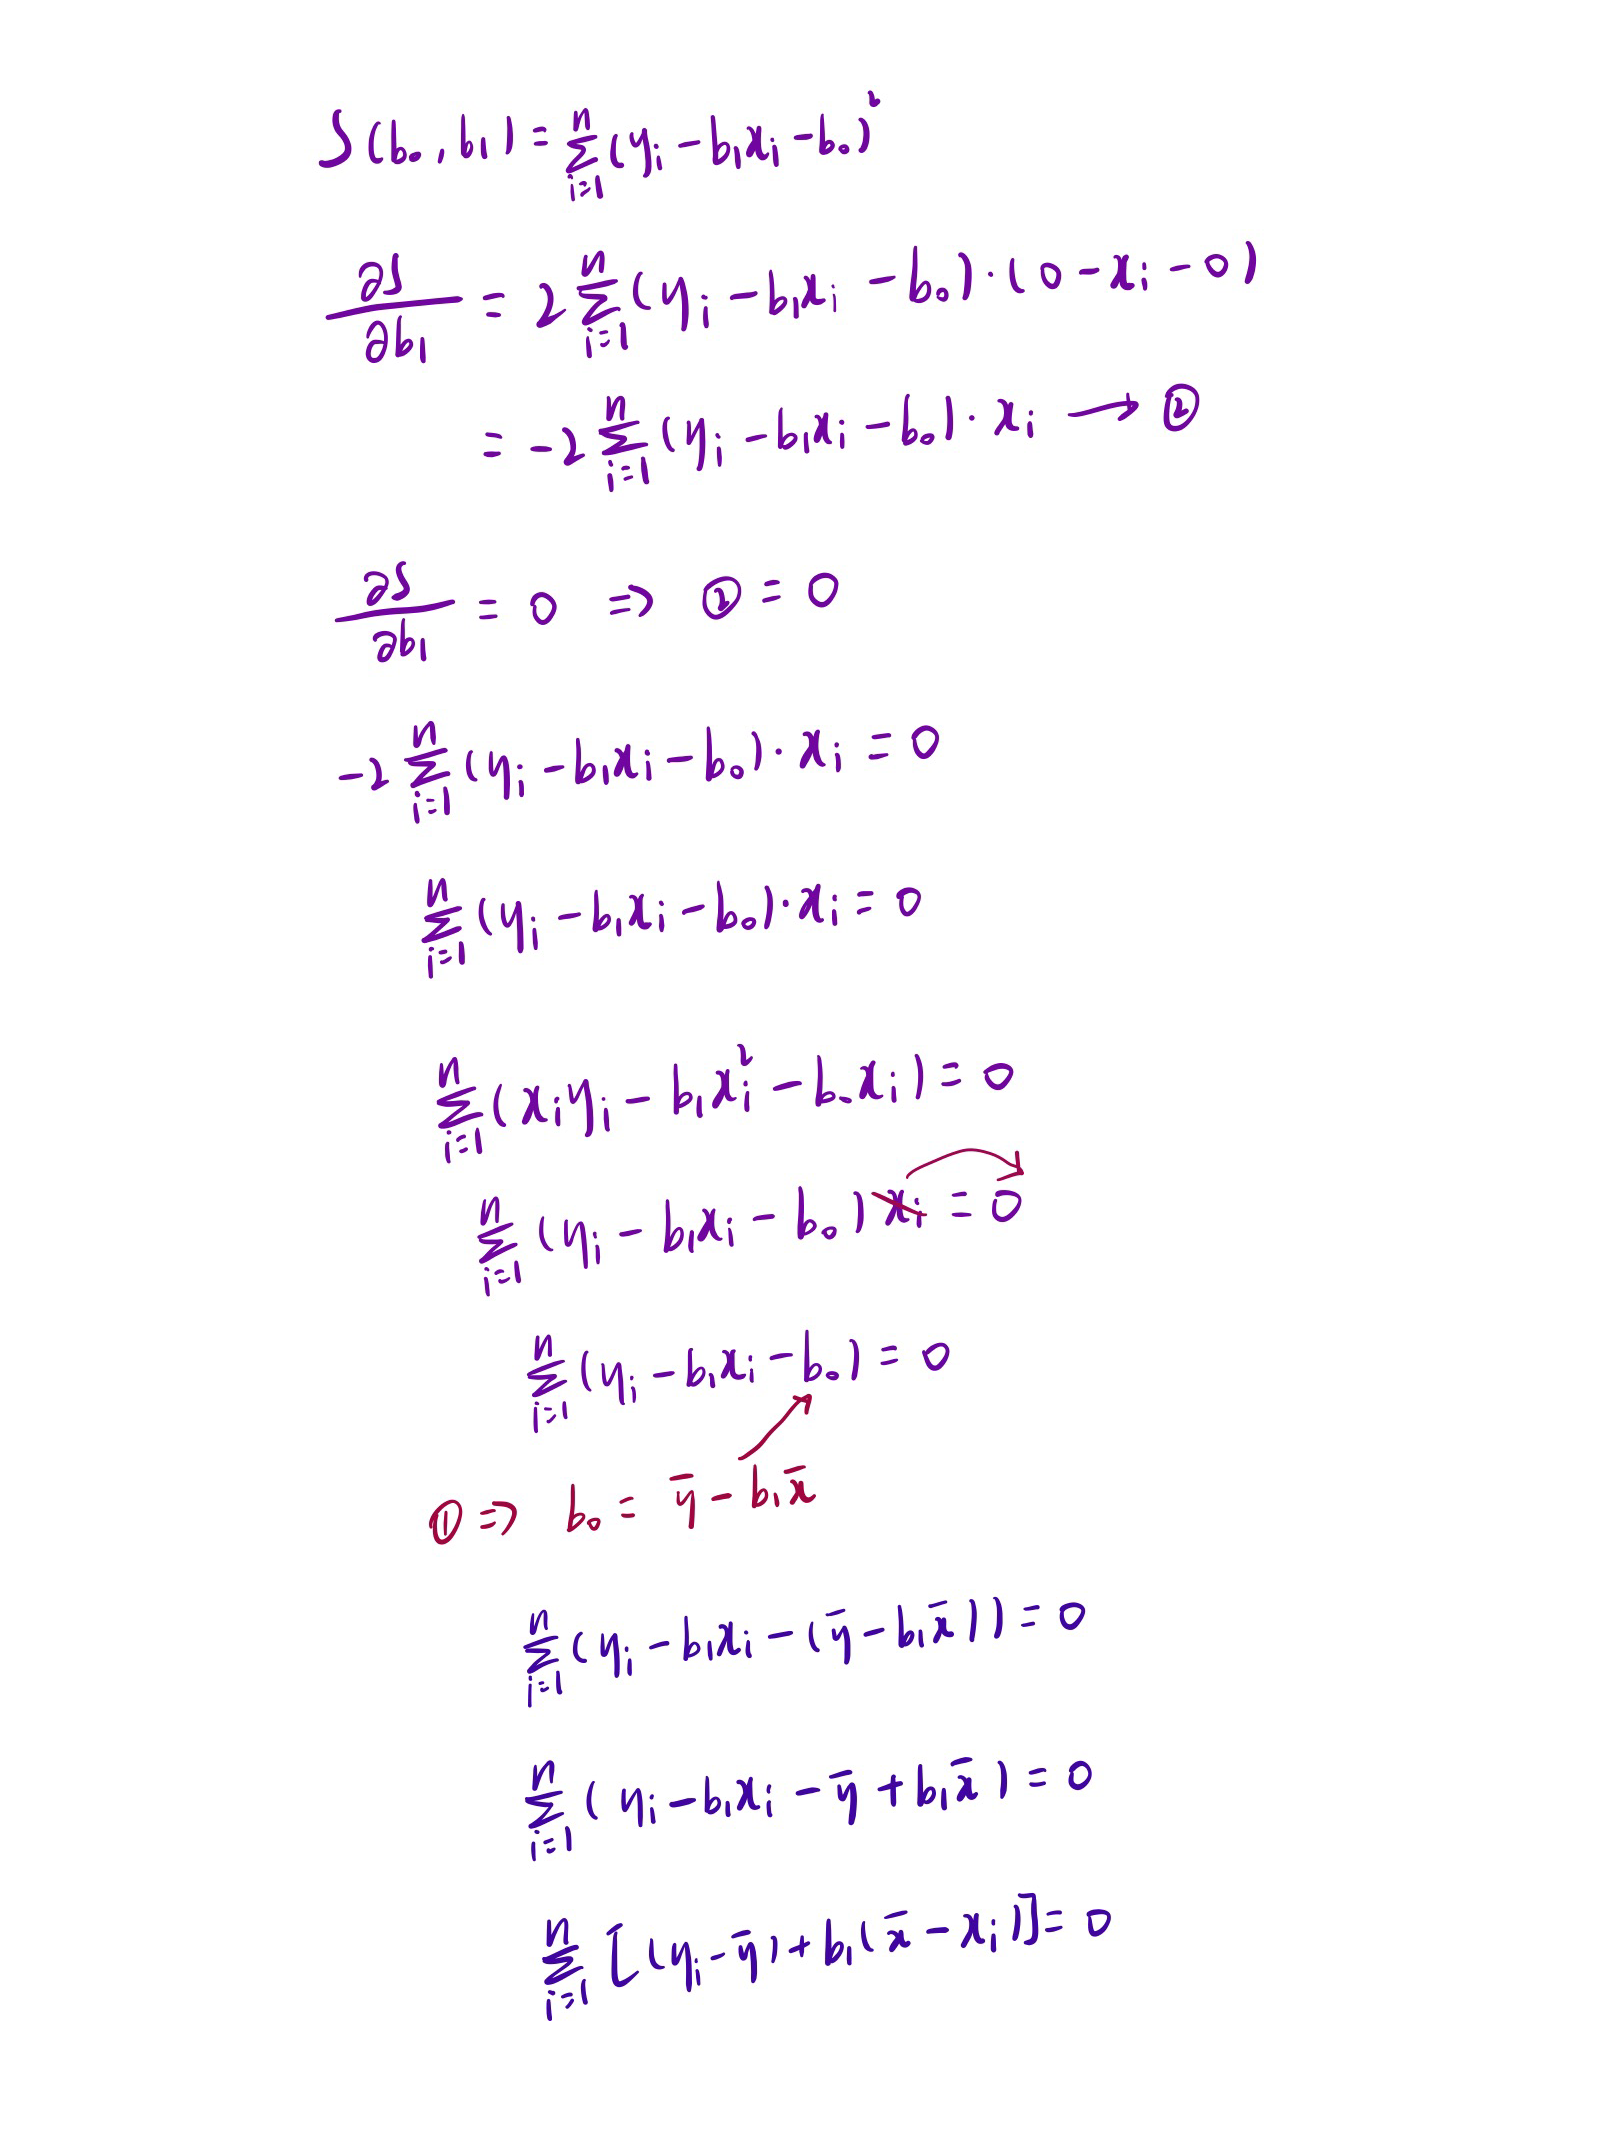 S(b₀, b₁) = Σⁿᵢ₌₁ (yᵢ − b₁xᵢ − b₀)²
∂S/∂b₁ = 2 Σⁿᵢ₌₁ (yᵢ − b₁xᵢ − b₀) · (0 − xᵢ − 0)
= −2 Σⁿᵢ₌₁ (yᵢ − b₁xᵢ − b₀) · xᵢ → ②
∂S/∂b₁ = 0 ⇒ ② = 0
−2 Σⁿᵢ₌₁ (yᵢ − b₁xᵢ − b₀) · xᵢ = 0
Σⁿᵢ₌₁ (yᵢ − b₁xᵢ − b₀) · xᵢ = 0
Σⁿᵢ₌₁ (xᵢyᵢ − b₁xᵢ² − b₀xᵢ) = 0
Σⁿᵢ₌₁ (yᵢ − b₁xᵢ − b₀) xᵢ = 0
Σⁿᵢ₌₁ (yᵢ − b₁xᵢ − b₀) = 0
① ⇒ b₀ = ȳ − b₁x̄
Σⁿᵢ₌₁ (yᵢ − b₁xᵢ − (ȳ − b₁x̄)) = 0
Σⁿᵢ₌₁ (yᵢ − b₁xᵢ − ȳ + b₁x̄) = 0
Σⁿᵢ₌₁ [(yᵢ − ȳ) + b₁(x̄ − xᵢ)] = 0